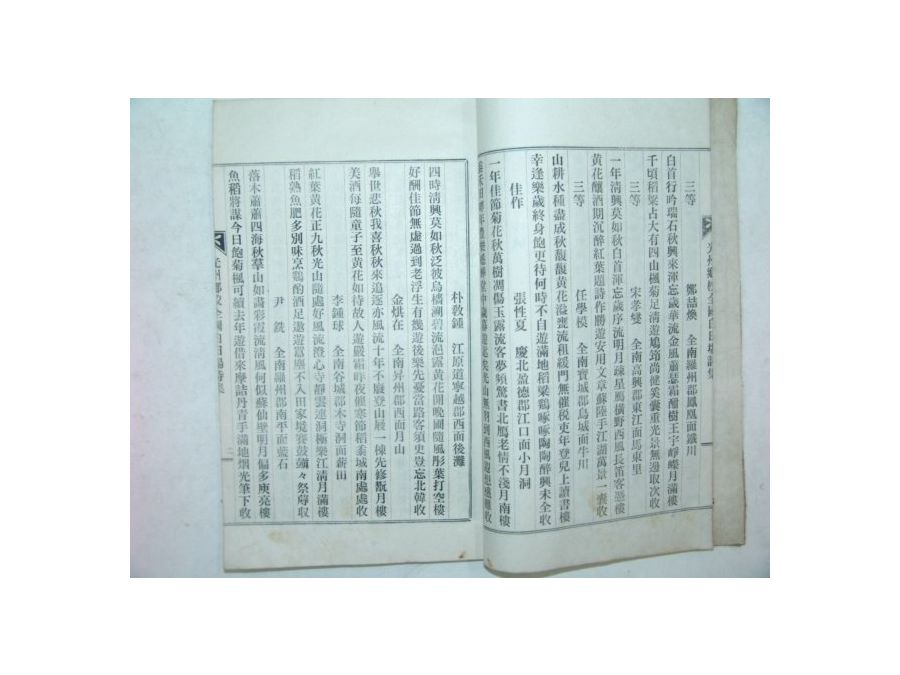 三等　鄭喆煥　全南羅州郡鳳凰面鐵川
白首行吟瑞石秋興來渾忘歲華流金風蕭瑟霜醺樹玉宇崢嶸月滿樓
千頃稻粱占大有四山楓菊足淸遊鳩筇尙健奚囊重光景無邊取次收
三等　宋孝燮　全南高興郡東江面馬東里
一年淸興莫如秋白首渾忘歲序流明月疎星鴈橫野西風長笛客憑樓
黃花釀酒期沉醉紅葉題詩作勝遊安用文章蘇陸手江湖萬景一囊收
三等　任學模　全南寶城郡鳥城面牛川
山耕水種盡成秋馥馥黃花溢甕流租緩門無催稅吏年登兒上讀書樓
幸逢樂歲終身飽更待何時不自遊滿地稻粱鷄啄啄陶陶醉興未全收
佳作　張性夏　慶北盈德郡江口面小月洞
一年佳節菊花秋萬樹凋傷玉露流客夢頻驚書北鴈老情不淺月南樓
朴敎鍾　江原道寧越郡西面後灘
四時淸興莫如秋泛彼烏檣湖碧流浥露黃花開晩圃隨風彤葉打空樓
好酬佳節無虛過到老浮生有幾遊後樂先憂當路客須史豈忘北韓收
金烘在　全南昇州郡西面月山
擧世悲秋我喜秋秋來追逐亦風流十年不廢登山屐一棟先修翫月樓
美酒每隨童子至黃花如待故人遊嚴霜昨夜催寒節稻黍城南處處收
李鍾球　全南谷城郡木寺洞面薪田
紅葉黃花正九秋光山隨處好風流澄心寺靜雲連洞極樂江淸月滿樓
稻熟魚肥多別味烹鷄酌酒足遨遊當塵不入田家境賽鼓𪔛々祭蒔收
尹　銑　全南羅州郡南平面藍石
落木蕭蕭四海秋羣山如畵彩霞流淸風何似蘇仙壁明月偏多庾亮樓
魚稻將謀今日飽菊楓可續去年遊借來摩詰丹靑手滿地烟光筆下收